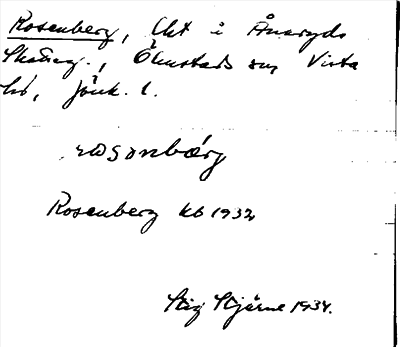 Rosenberg, lht i Ånaryds
Skatteg., Ölmstads sn Vista
hd, Jönk. l.
rosənbærj
Rosenberg kb 1932
Stig Stjärne 1934.